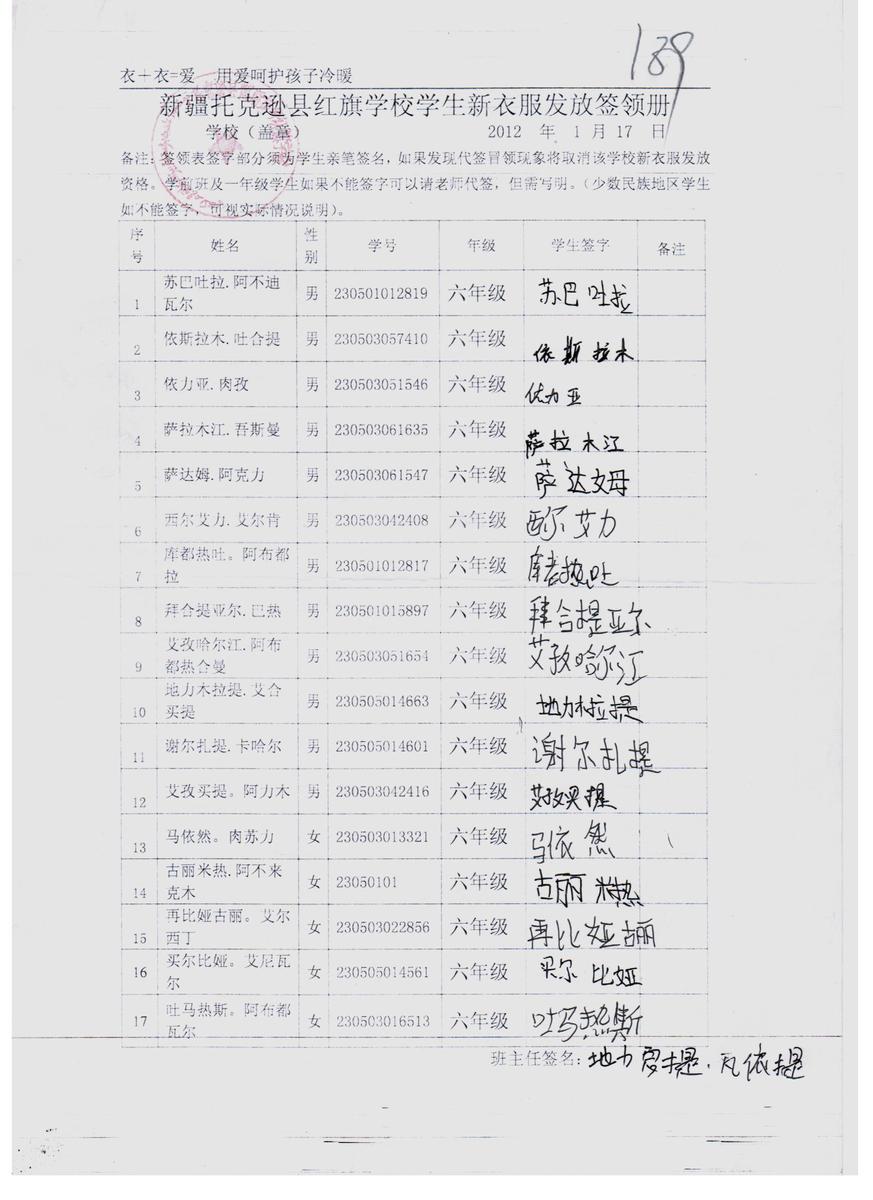 189
衣＋衣=爱 用爱呵护孩子冷暖
新疆托克逊县红旗学校学生新衣服发放签领册
学校（盖章） 2012 年 1 月 17 日
备注：签领表签字部分须为学生亲笔签名，如果发现代签冒领现象将取消该学校新衣服发放
资格。学前班及一年级学生如果不能签字可以请老师代签，但需写明。（少数民族地区学生
如不能签字，可视实际情况说明）。
序号 姓名 性别 学号 年级 学生签字 备注
1 苏巴吐拉.阿不迪瓦尔 男 230501012819 六年级 苏巴吐拉
2 依斯拉木.吐合提 男 230503057410 六年级 依斯拉木
3 依力亚.肉孜 男 230503051546 六年级 依力亚
4 萨拉木江.吾斯曼 男 230503061635 六年级 萨拉木江
5 萨达姆.阿克力 男 230503061547 六年级 萨达姆
6 西尔艾力.艾尔肯 男 230503042408 六年级 西尔艾力
7 库都热吐。阿布都拉 男 230501012817 六年级 库都热吐
8 拜合提亚尔.巴热 男 230501015897 六年级 拜合提亚尔
9 艾孜哈尔江.阿布都热合曼 男 230503051654 六年级 艾孜哈尔江
10 地力木拉提.艾合买提 男 230505014663 六年级 地力木拉提
11 谢尔扎提.卡哈尔 男 230505014601 六年级 谢尔扎提
12 艾孜买提。阿力木 男 230503042416 六年级 艾孜买提
13 马依然。肉苏力 女 230503013321 六年级 马依然
14 古丽米热.阿不来克木 女 23050101 六年级 古丽米热
15 再比娅古丽。艾尔西丁 女 230503022856 六年级 再比娅古丽
16 买尔比娅。艾尼瓦尔 女 230505014561 六年级 买尔比娅
17 吐马热斯。阿布都瓦尔 女 230503016513 六年级 吐马热斯
班主任签名：地力夏提.瓦依提